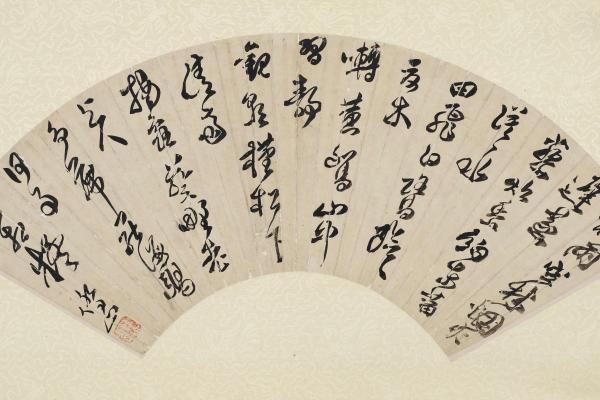 雨空林煙火
遲
藜炊黍餉東菑
漠〻水
田飛白鷺陰〻
夏木
囀黃鸝山中
習靜
觀朝槿松下
清齋
折露葵野老
與人
爭席罷海鷗
何事
相疑